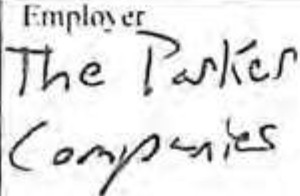 Employer
The Parker
Companies